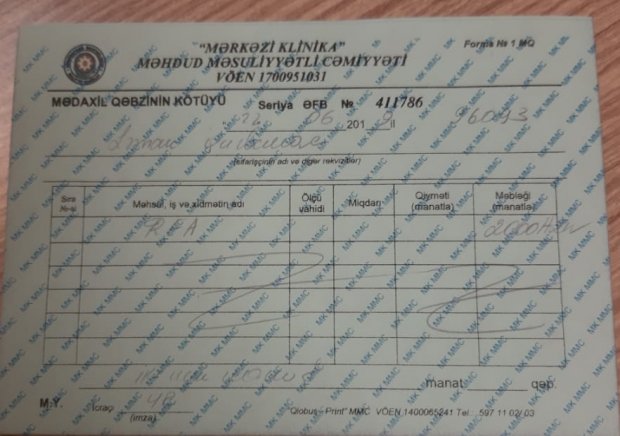 "MƏRKƏZİ KLİNİKA" Forma № 1 MQ
MƏHDUD MƏSULİYYƏTLİ CƏMİYYƏTİ
VÖEN 1700951031
MƏDAXİL QƏBZİNİN KÖTÜYÜ Seriya ƏFB № 411786
" 22 " 06 201 9 il
(sifarişçinin adı və digər rekvizitləri)
Sıra №-si Məhsul, iş və xidmətin adı Ölçü vahidi Miqdarı Qiyməti (manatla) Məbləği (manatla)
2000
manat qəp.
M.Y. İcraçı
(imza)
"Qlobus-Print" MMC VÖEN 1400065241 Tel.: 597 11 02/ 03
MK MMC